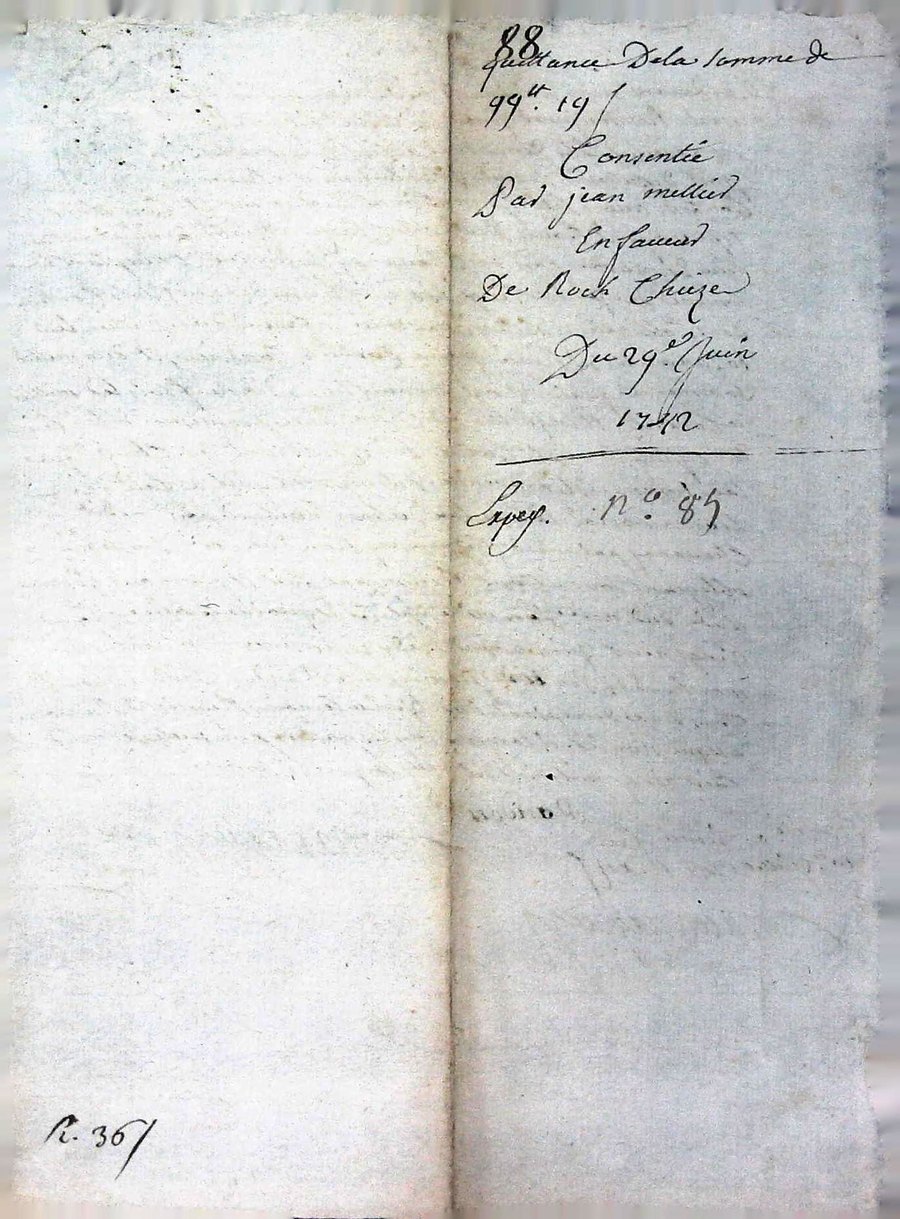 88
quittance De la somme de
99tt. 19 s
Consentée
Par jean mellier
En faveur
De Rock Chieze
Du 29e. Juin
1742
Expey. No. 85
R. 36 s